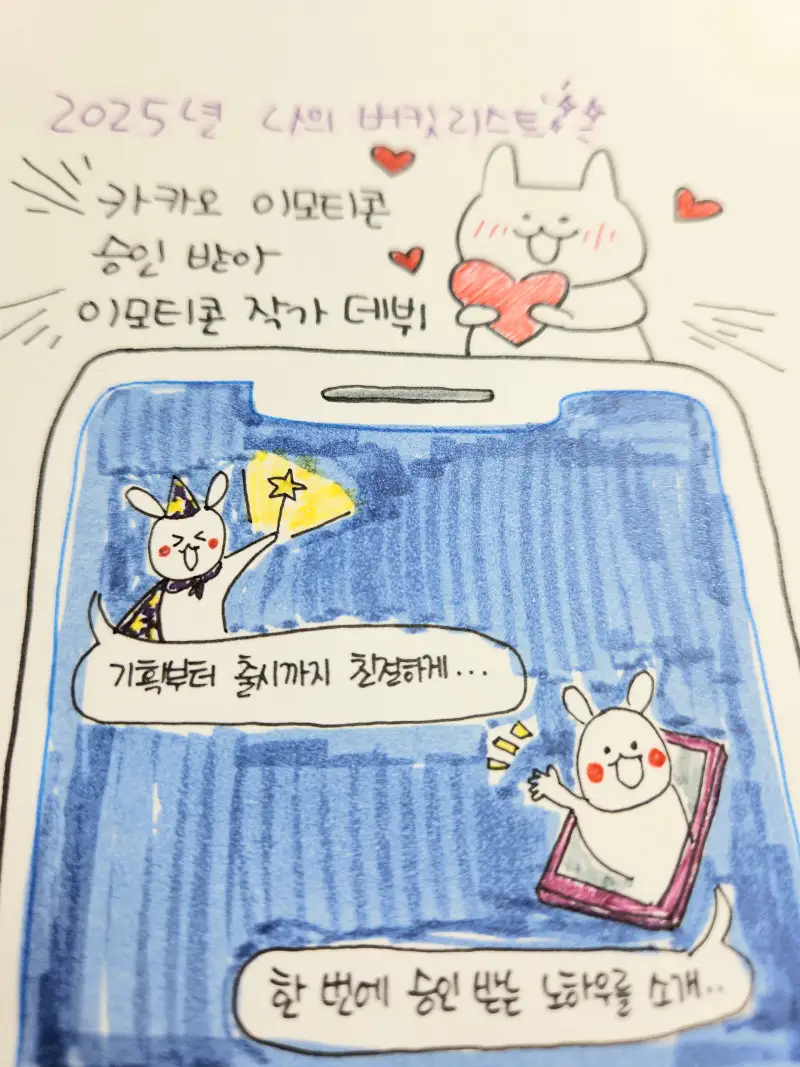 2025년 나의 버킷리스트
카카오 이모티콘
승인 받아
이모티콘 작가 데뷔
기획부터 출시까지 친절하게...
한 번에 승인 받는 노하우를 소개..